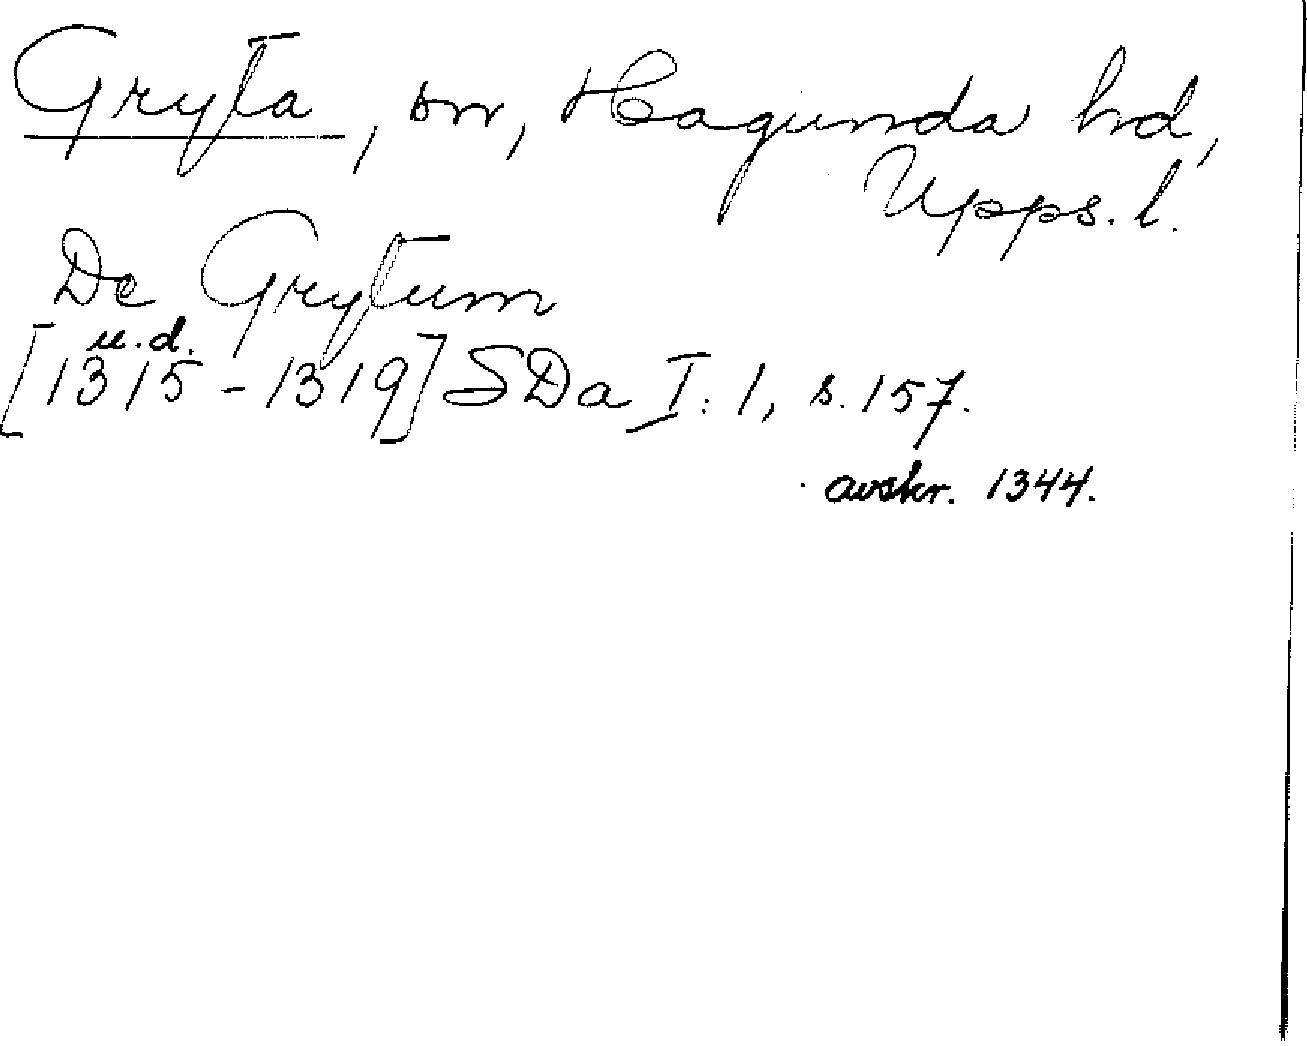 Gryta, sn, Hagunda hd,
Upps. l.
De Grytum
u.d.
[1315-1319] SDa I:1, s. 157.
avskr. 1344.